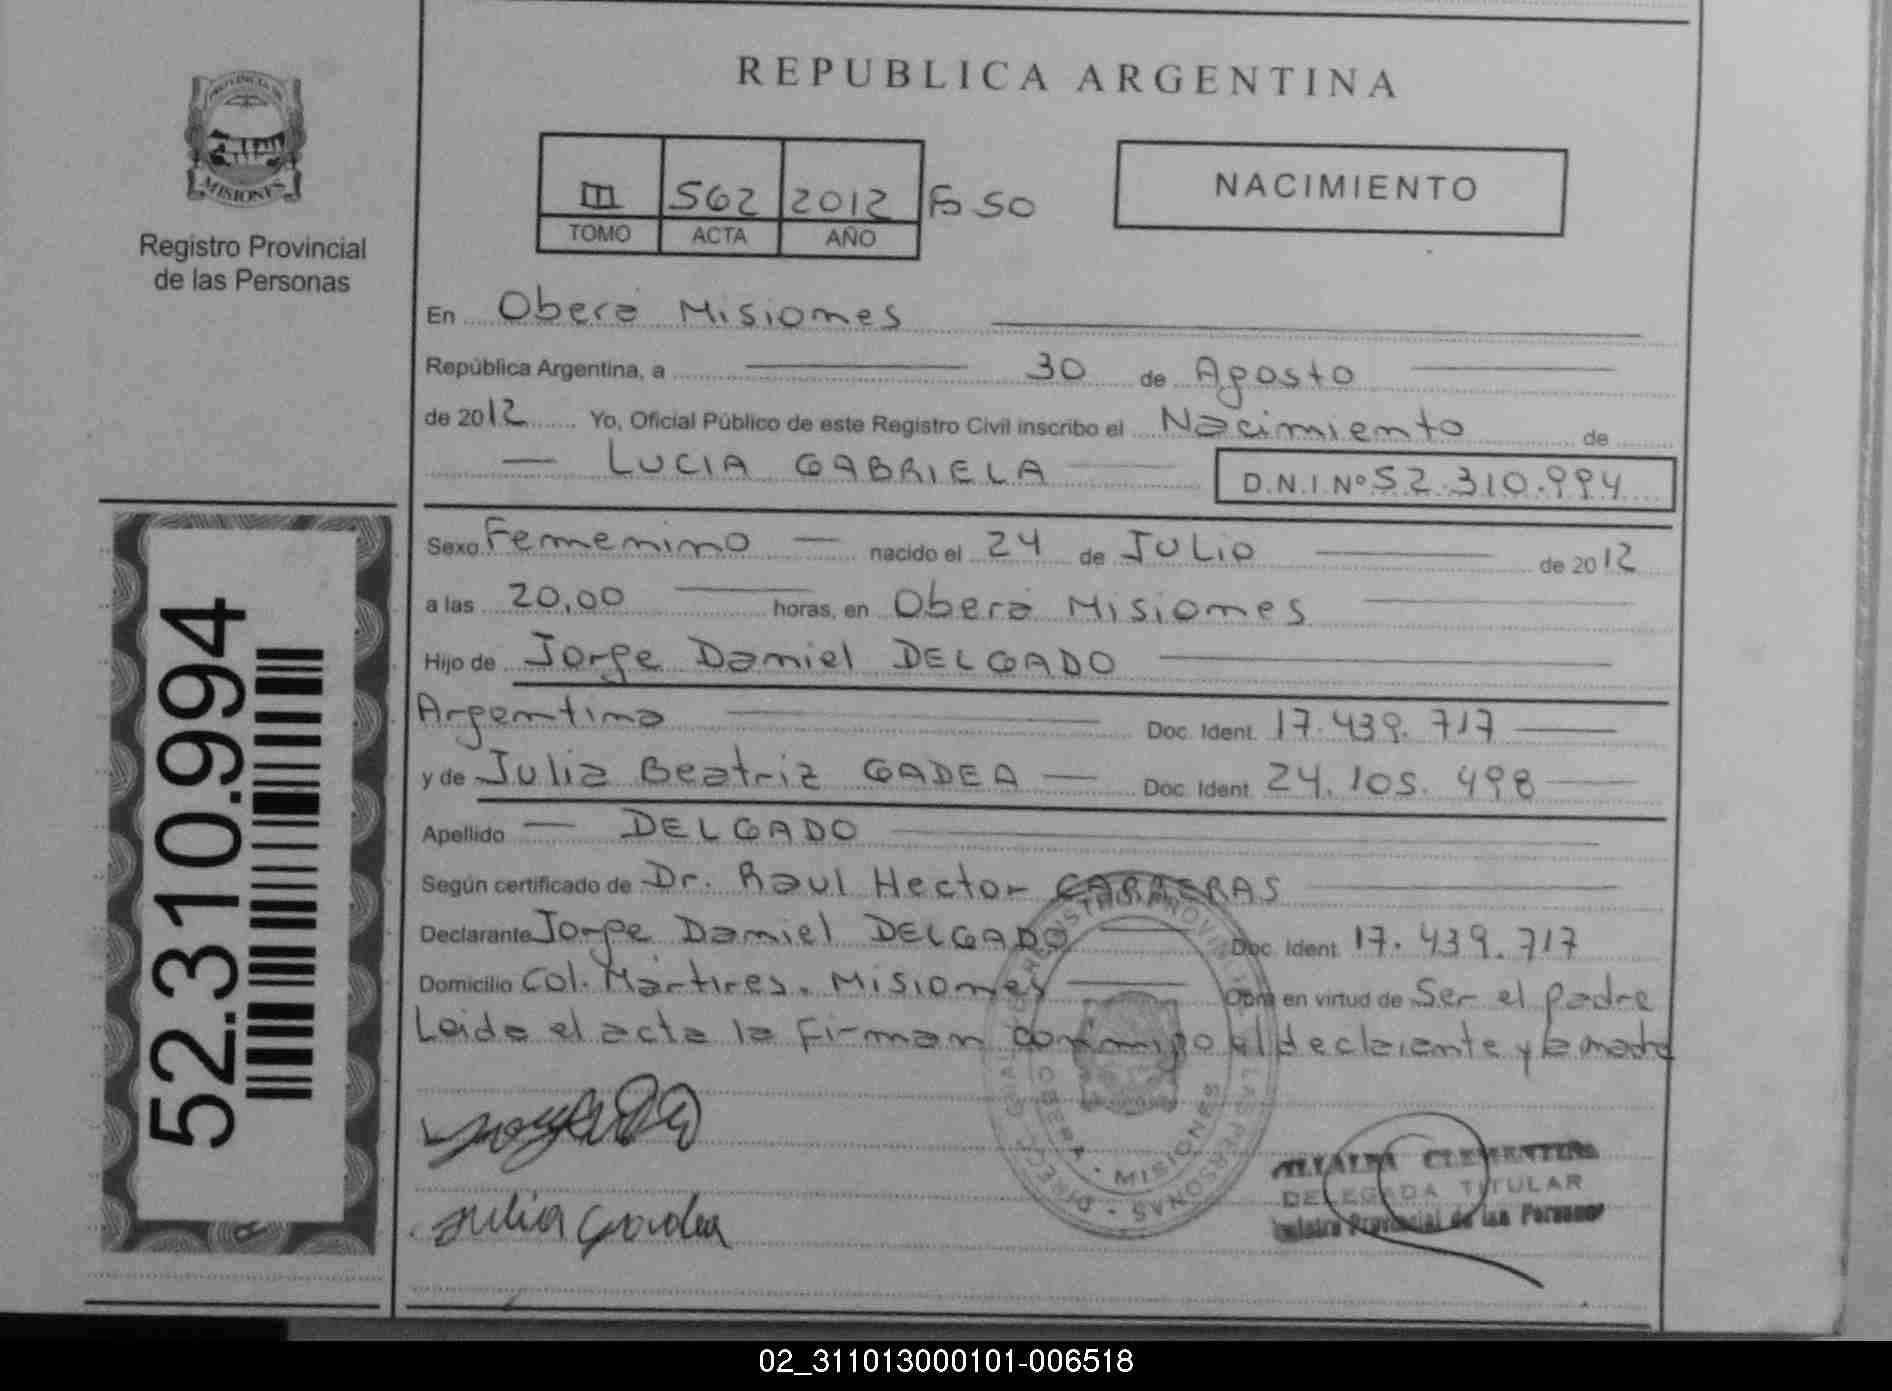 PROVINCIA DE
MISIONES
Registro Provincial
de las Personas
REPUBLICA ARGENTINA
III 562 2012 Fo 50
TOMO ACTA AÑO
NACIMIENTO
En Oberá Misiones
República Argentina, a 30 de Agosto
de 2012 Yo, Oficial Público de este Registro Civil inscribo el Nacimiento de
LUCIA GABRIELA D.N.I. Nº 52.310.994
Sexo Femenino nacido el 24 de JULIO de 2012
a las 20,00 horas, en Oberá Misiones
Hijo de Jorge Daniel DELGADO
Argentina Doc. Ident. 17.439.717
y de Julia Beatriz GADEA Doc. Ident. 24.105.498
Apellido DELGADO
Según certificado de Dr. Raul Hector CARRERAS
Declarante Jorge Daniel DELGADO Doc. Ident. 17.439.717
Domicilio Col. Mártires. Misiones Obra en virtud de Ser el padre
Leida el acta la firman conmigo el declarante y la madre
52.310.994
OBERA - MISIONES
Julia Gadea
CLEMENTINA
DELEGADA TITULAR
Registro Provincial de las Personas
02_311013000101-006518